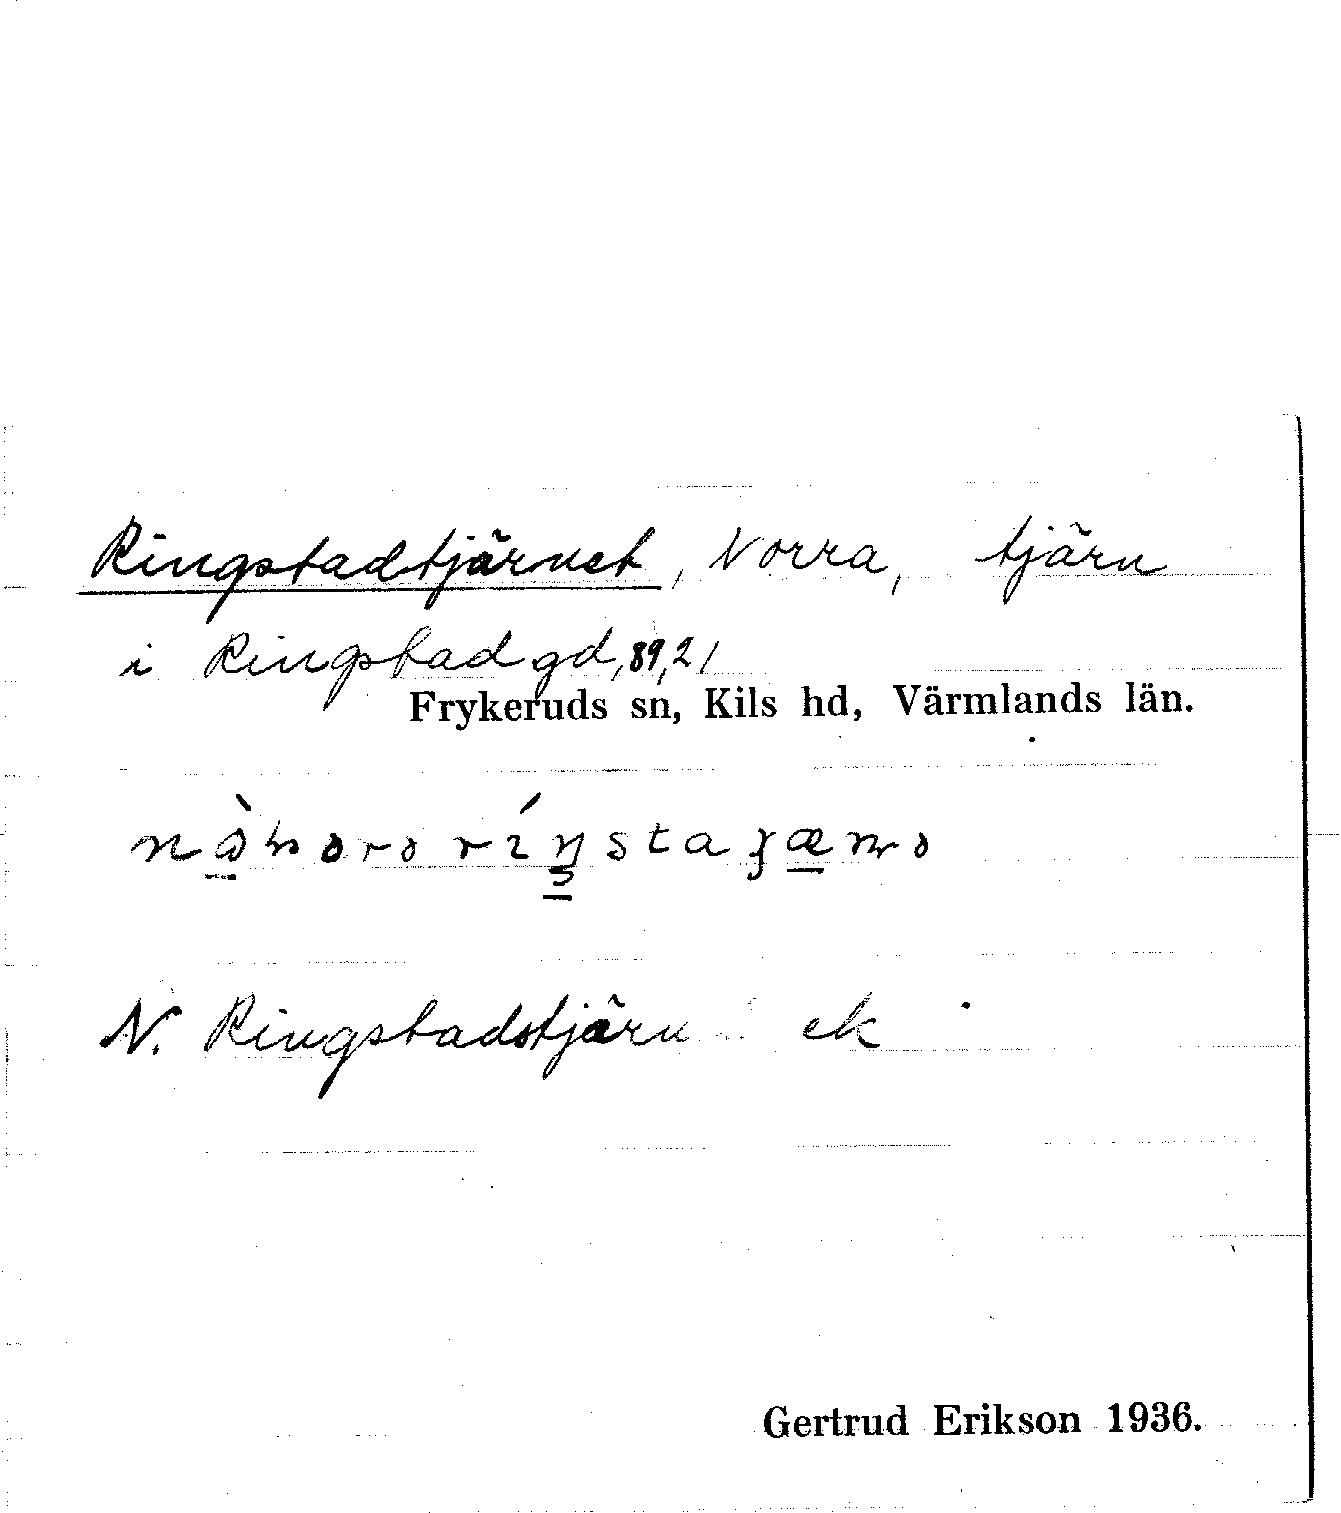 Ringstadtjärnet, Norra, tjärn
i Ringstad gd, 89,21
Frykeruds sn, Kils hd, Värmlands län.
N. Ringstadstjärn ek
Gertrud Erikson 1936.